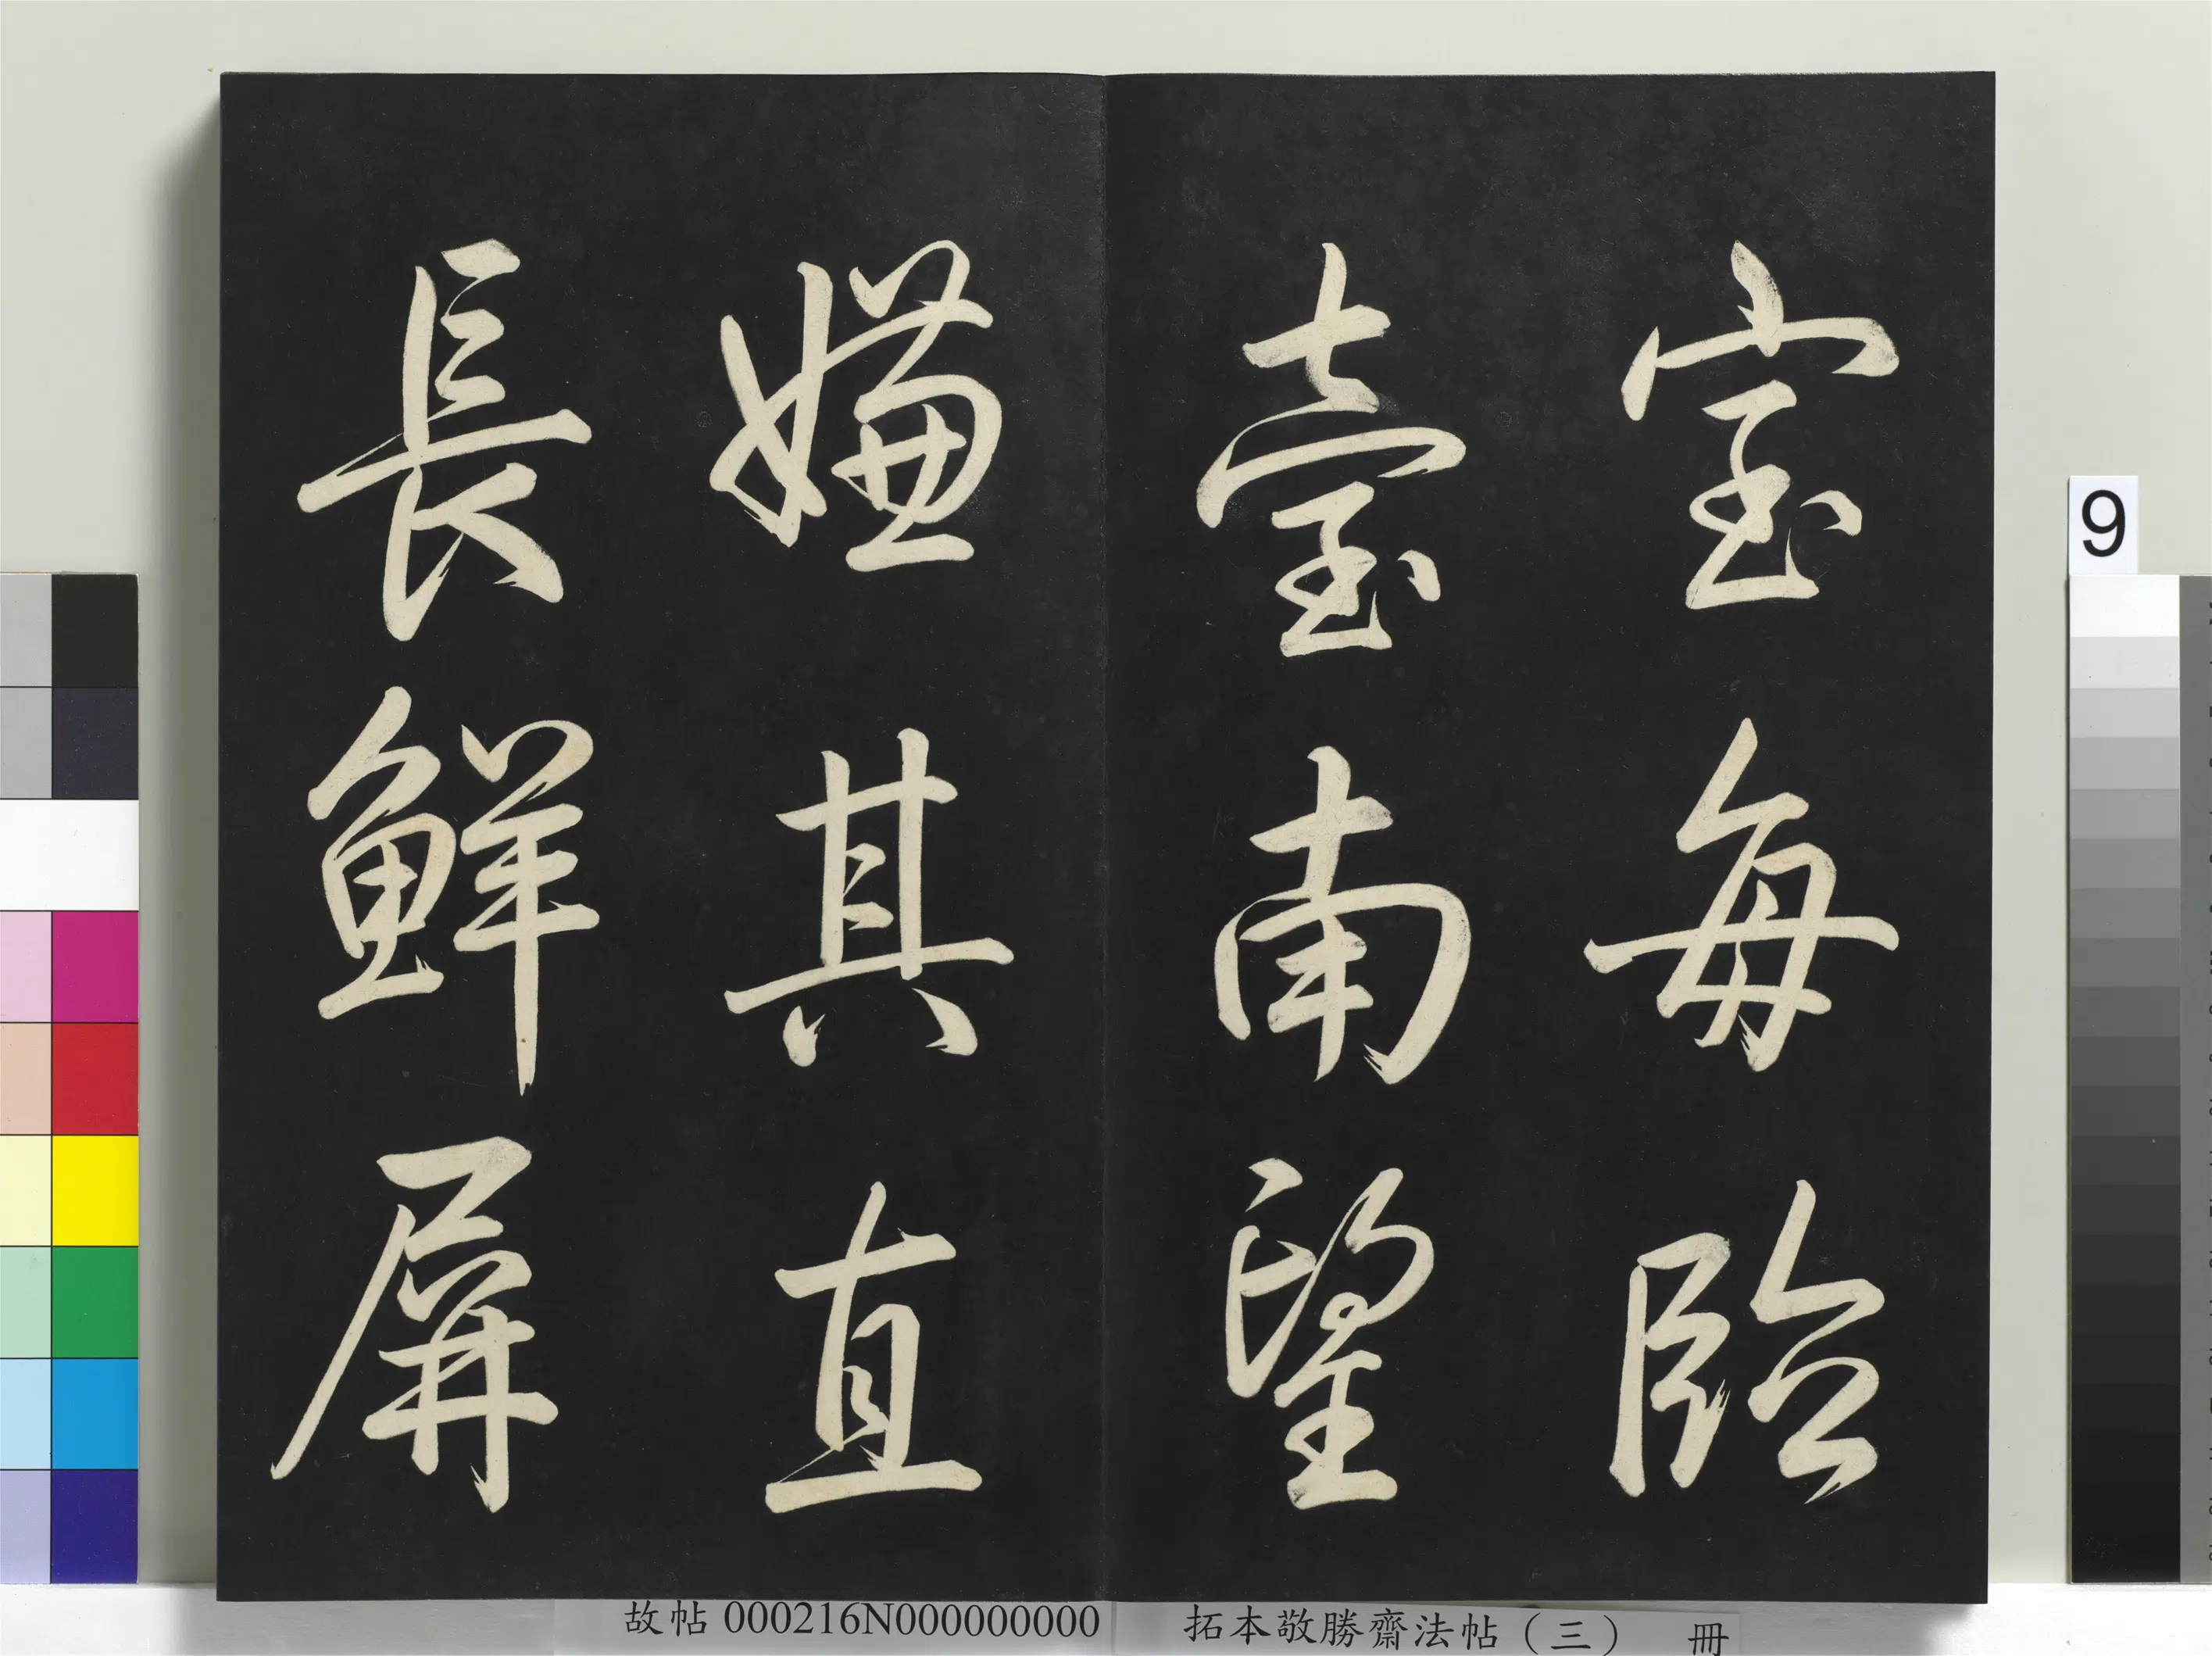 室每臨
臺南望
嫌其直
長鮮屏
9
故帖 000216N000000000 拓本敬勝齋法帖（三） 冊